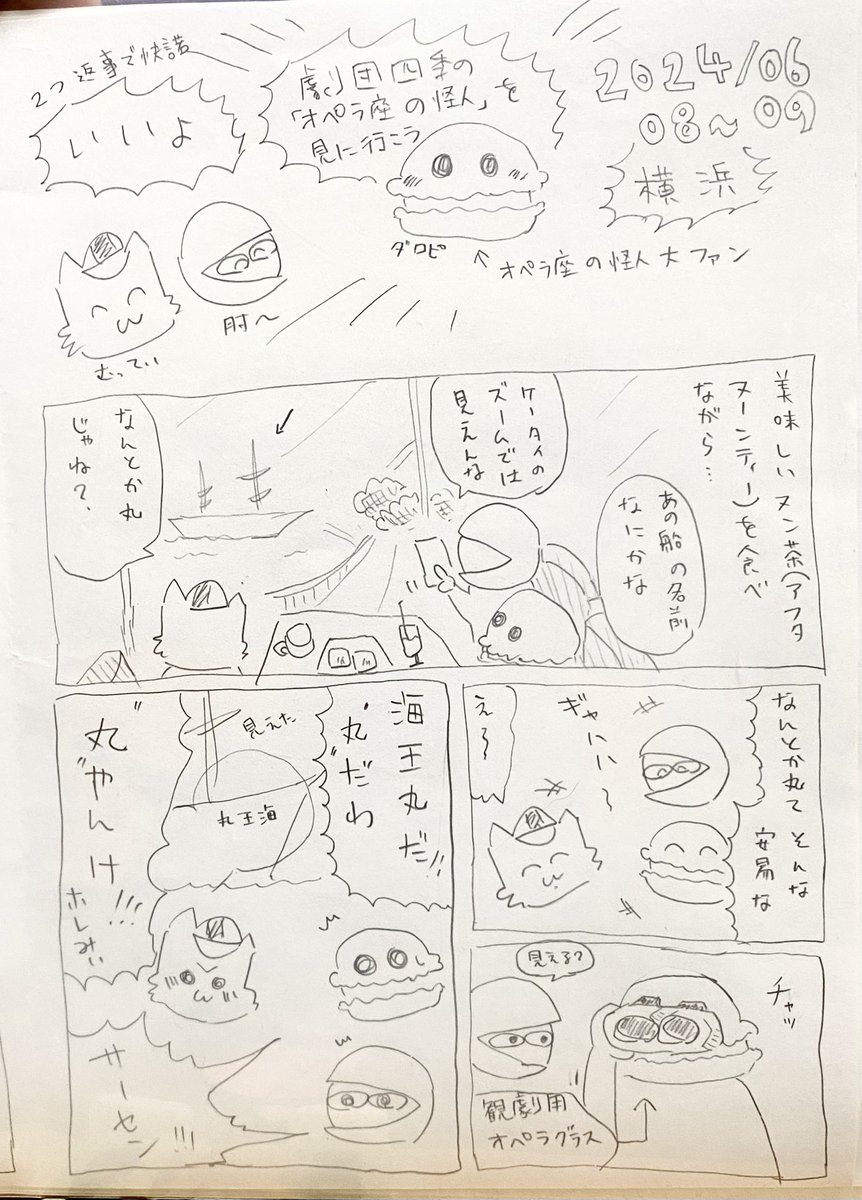 2024/06
08〜09
横浜
劇団四季の
「オペラ座の怪人」を
見に行こう
ダロピ
↑オペラ座の怪人大ファン
2つ返事で快諾
いいよ
肘〜
むってぃ
美味しいヌン茶(アフタ
ヌーンティー)を食べ
ながら…
あの船の名前
なにかな
ケータイの
ズームでは
見えんな
なんとか丸
じゃね?
なんとか丸て そんな
安易な
ギャハハ〜
え〜
チャッ
見える?
観劇用
オペラグラス
海王丸だ!!
"丸"だわ
見えた
丸王海
"丸"やんけ
!!!
ホレみぃ
サーセン!!!